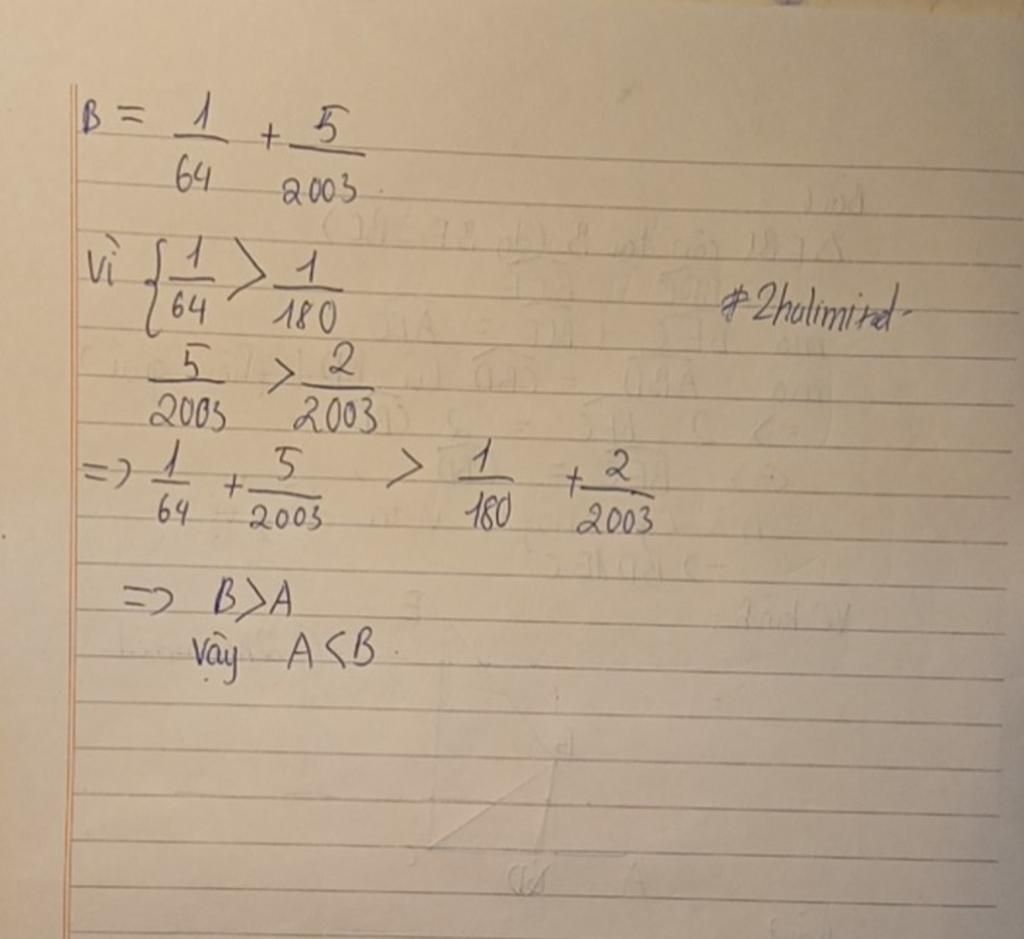 B = 1/64 + 5/2003
Vì { 1/64 > 1/180
5/2003 > 2/2003
=> 1/64 + 5/2003 > 1/180 + 2/2003
=> B > A
Vậy A < B.